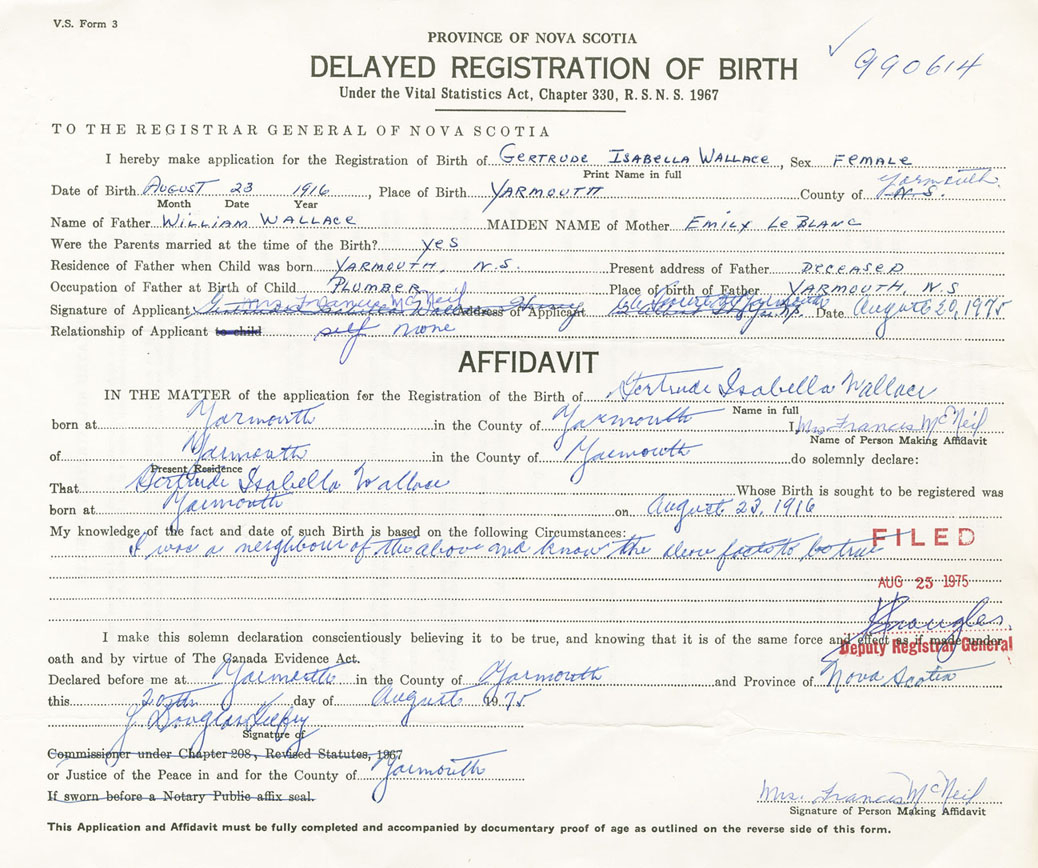 V.S. Form 3
PROVINCE OF NOVA SCOTIA
990614
DELAYED REGISTRATION OF BIRTH
Under the Vital Statistics Act, Chapter 330, R. S. N. S. 1967
TO THE REGISTRAR GENERAL OF NOVA SCOTIA
I hereby make application for the Registration of Birth of GERTRUDE ISABELLA WALLACE, Sex FEMALE
Print Name in full
Yarmouth
Date of Birth AUGUST 23 1916, Place of Birth YARMOUTH County of N.S.
Month Date Year
Name of Father WILLIAM WALLACE MAIDEN NAME of Mother EMILY LE BLANC
Were the Parents married at the time of the Birth? yes
Residence of Father when Child was born YARMOUTH, N.S. Present address of Father DECEASED
Occupation of Father at Birth of Child PLUMBER Place of birth of Father YARMOUTH, N.S
Signature of Applicant Mrs. Francis McNeil Address of Applicant Yarmouth Date August 20, 1975
Relationship of Applicant to child self none
AFFIDAVIT
IN THE MATTER of the application for the Registration of Birth of Gertrude Isabella Wallace
Name in full
born at Yarmouth in the County of Yarmouth I, Mrs Francis McNeil
Name of Person Making Affidavit
of Yarmouth in the County of Yarmouth do solemnly declare:
Present Residence
That Gertrude Isabella Wallace Whose Birth is sought to be registered was
born at Yarmouth on August 23, 1916
My knowledge of the fact and date of such Birth is based on the following Circumstances:
I was a neighbour of the above and know the above facts to be true
FILED
AUG 25 1975
I make this solemn declaration conscientiously believing it to be true, and knowing that it is of the same force and effect as if made under
Deputy Registrar General
oath and by virtue of The Canada Evidence Act.
Declared before me at Yarmouth in the County of Yarmouth and Province of Nova Scotia
this 20th day of August 1975
J Douglas
Signature of
Commissioner under Chapter 208, Revised Statutes, 1967
or Justice of the Peace in and for the County of Yarmouth
If sworn before a Notary Public affix seal.
Mrs. Francis McNeil
Signature of Person Making Affidavit
This Application and Affidavit must be fully completed and accompanied by documentary proof of age as outlined on the reverse side of this form.